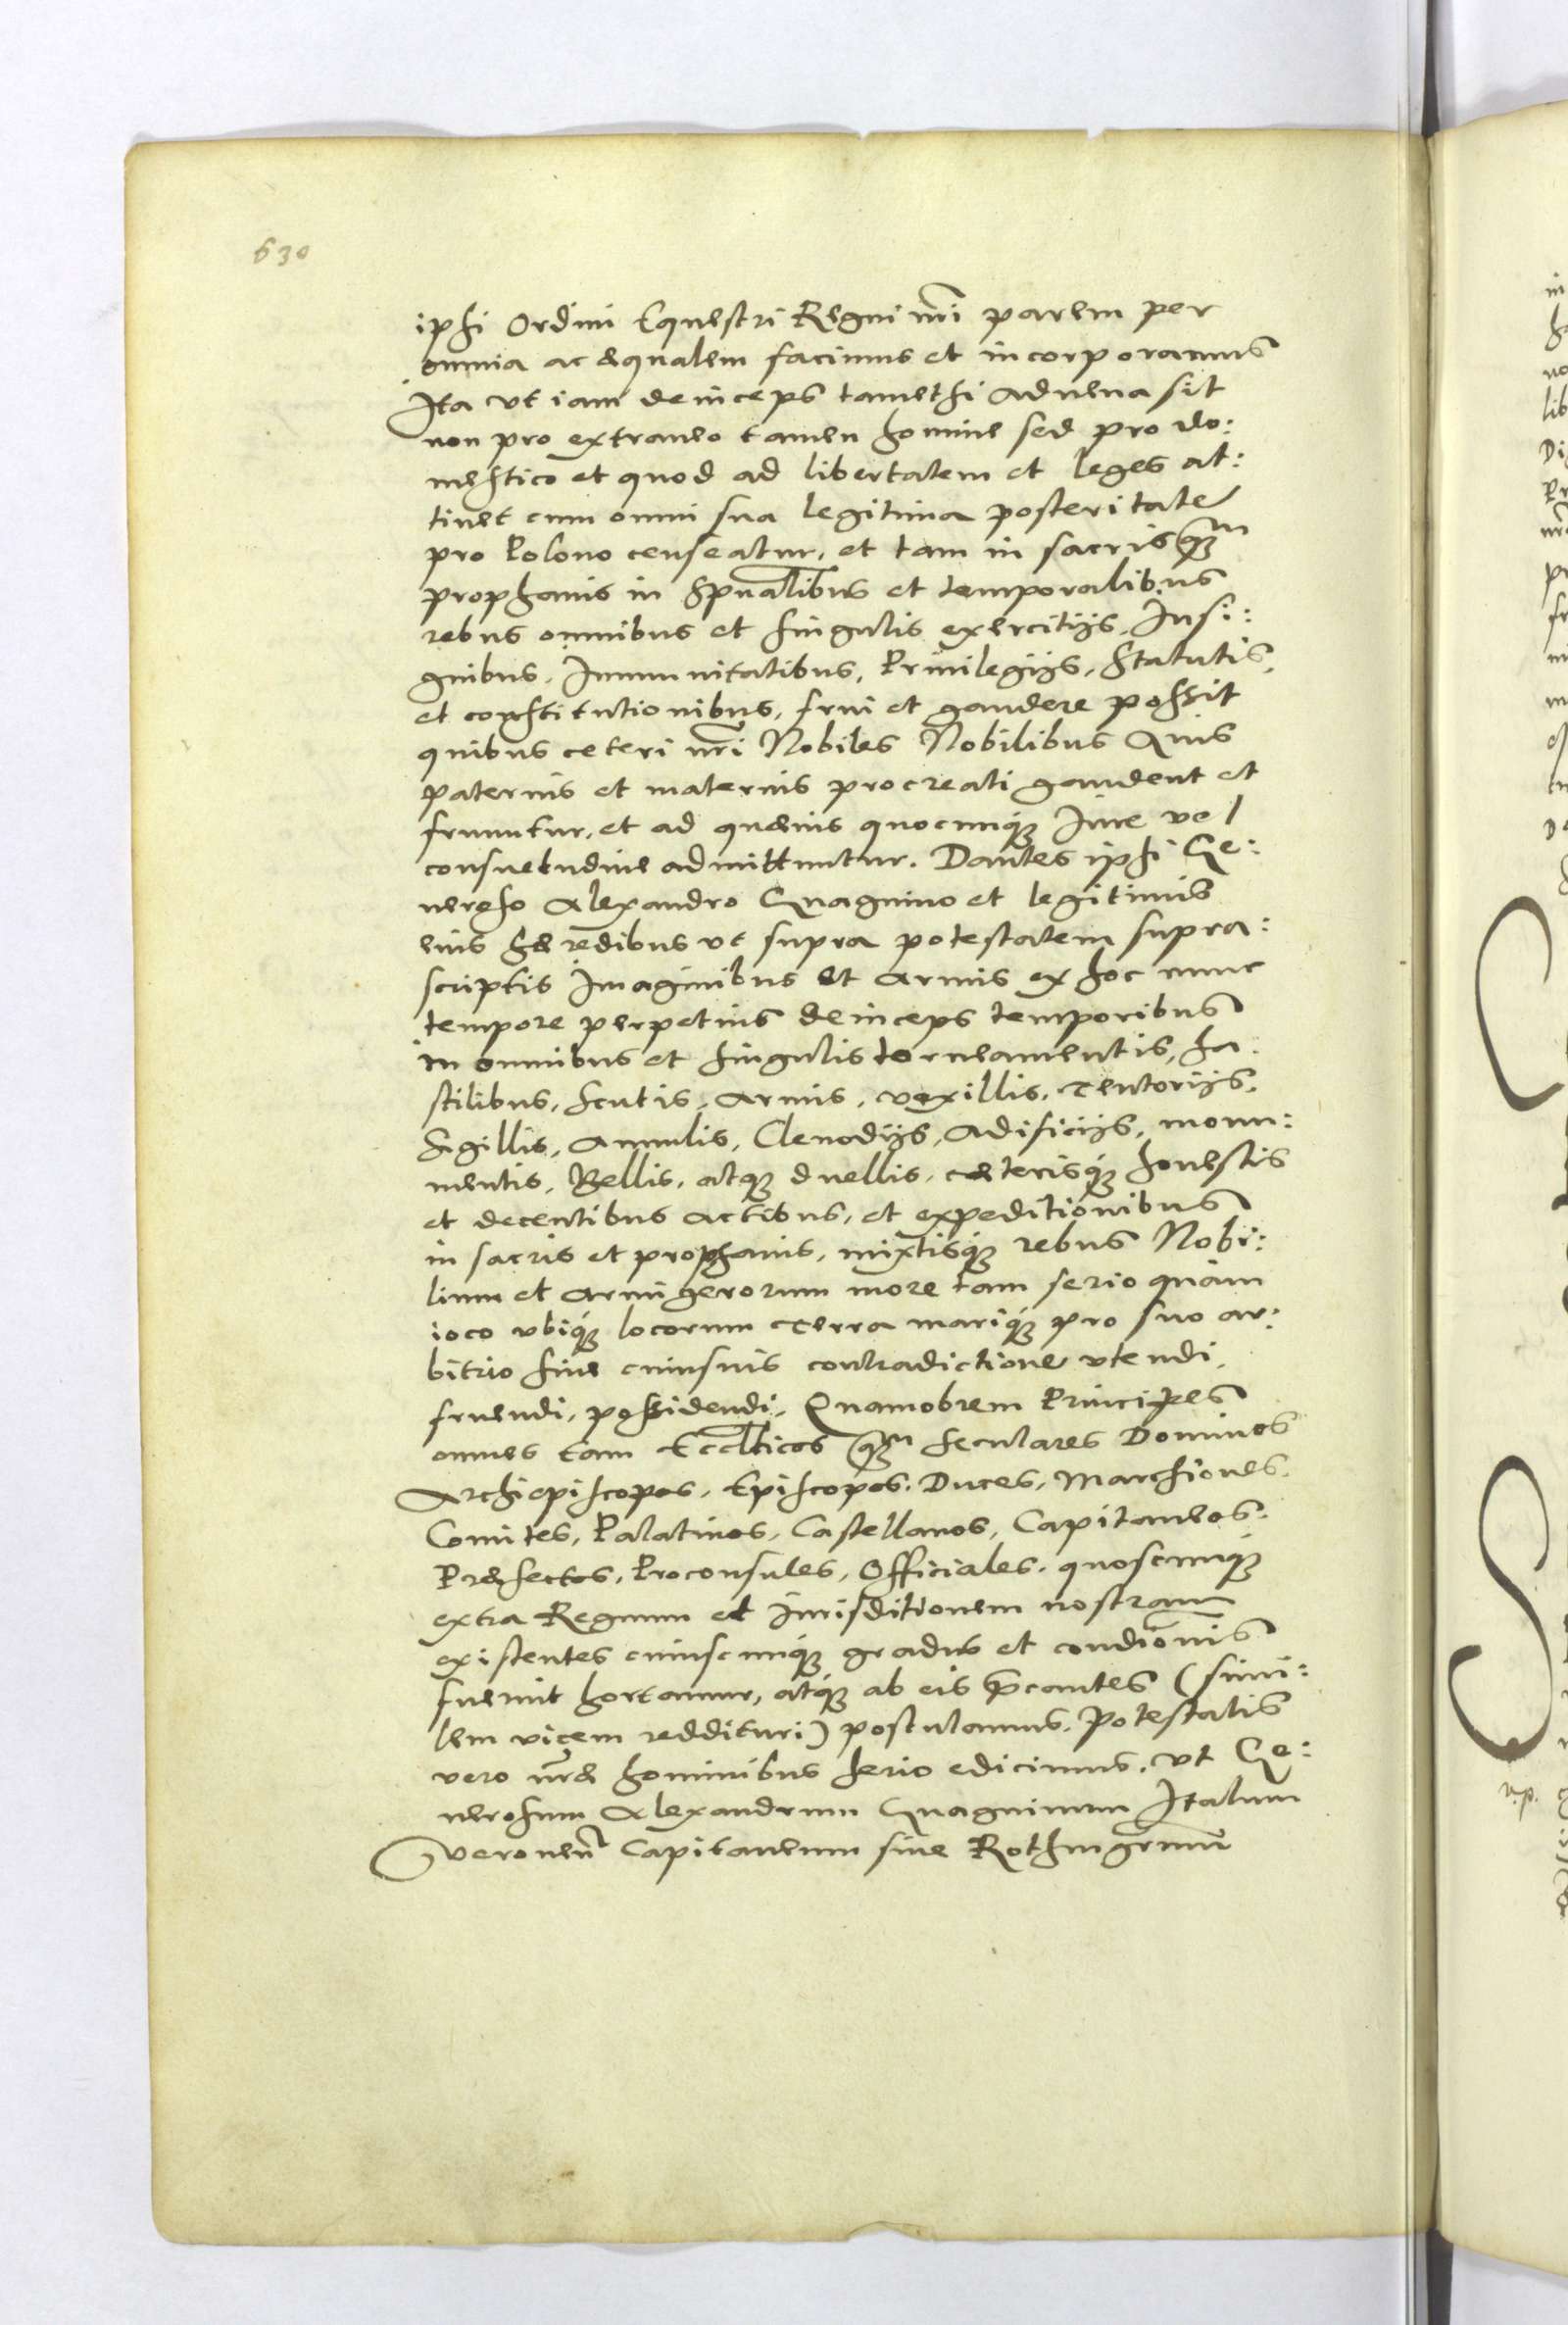 630
ipsi Ordini Equestri Regni nri parem per
omnia ac æqualem facimus et incorporamus
Ita vt iam deinceps tametsi aduena sit
non pro extraneo tamen homine sed pro do:
mestico et quod ad libertatem et leges at:
tinet cum omni sua legitima posteritate
pro Polono censeatur, et tam in sacris qm
prophanis in Spualibus et temporalibus
rebus omnibus et singulis exercitijs, Insi:
gnibus, Immunitatibus, Priuilegijs, Statutis,
et constitutionibus, frui et gaudere possit
quibus ceteri nri Nobiles Nobilibus Auis
paternis et maternis procreati gaudent et
fruuntur, et ad quæuis quocunq; Iure vel
consuetudine admittuntur. Dantes ipsi Ge:
neroso Alexandro Guagnino et legitimis
eius hæredibus vt supra potestatem supra:
scriptis Imaginibus et armis ex hoc nunc
tempore perpetuis deinceps temporibus
in omnibus et singulis torneamentis, ha
stilibus, scutis, armis, vexillis, tentorijs,
Sigillis, Annulis, Clenodijs, Ædificijs, monu:
mentis, Bellis, atq; duellis, cæterisq; honestis
et decentibus actibus, et expeditionibus
in sacris et prophanis, mixtisq; rebus Nobi:
lium et armigerorum more tam serio quàm
ioco vbiq; locorum terra mariq; pro suo ar:
bitrio sine cuiusuis contradictione vtendi,
fruendi, possidendi, Quamobrem Principes
omnes tam Ecclticos qm seculares Dominos
Archiepiscopos, Episcopos, Duces, Marchiones,
Comites, Palatinos, Castellanos, Capitaneos,
Præfectos, Proconsules, Officiales, quoscunq;
extra Regnum et Iurisditionem nostram
existentes cuiuscunq; gradus et condionis
fuerint hortamur, atq; ab eis pcantes (simi:
lem vicem reddituri) postulamus. Potestatis
vero nræ hominibus serio edicimus, vt Ge:
nerosum Alexandrum Guagninum Italum
Veronen Capitaneum siue Rothmgrum